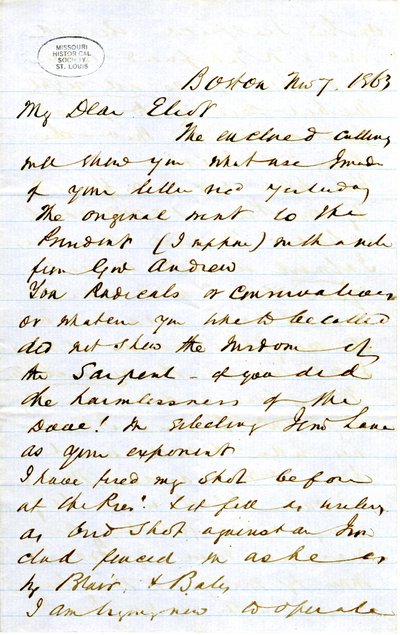 MISSOURI
HISTORICAL
SOCIETY
ST. LOUIS
Boston Nov 7. 1863
My Dear Eliot
The enclosed cutting
will show you what use I made
of your letter recd yesterday
The original went to the
President (I suppose) with a note
from Gov Andrew
You Radicals or Conservatives
or whatever you like to be called
did not show the wisdom of
the Sarpent - if you did
the harmlessness of the
Dove! in selecting Jim Lane
as your exponent
I have fired my shot before
at the Pres! & it fell as
as bird shot against an Iron
clad fenced in as he is
by Blair & Bates
I am trying now to operate